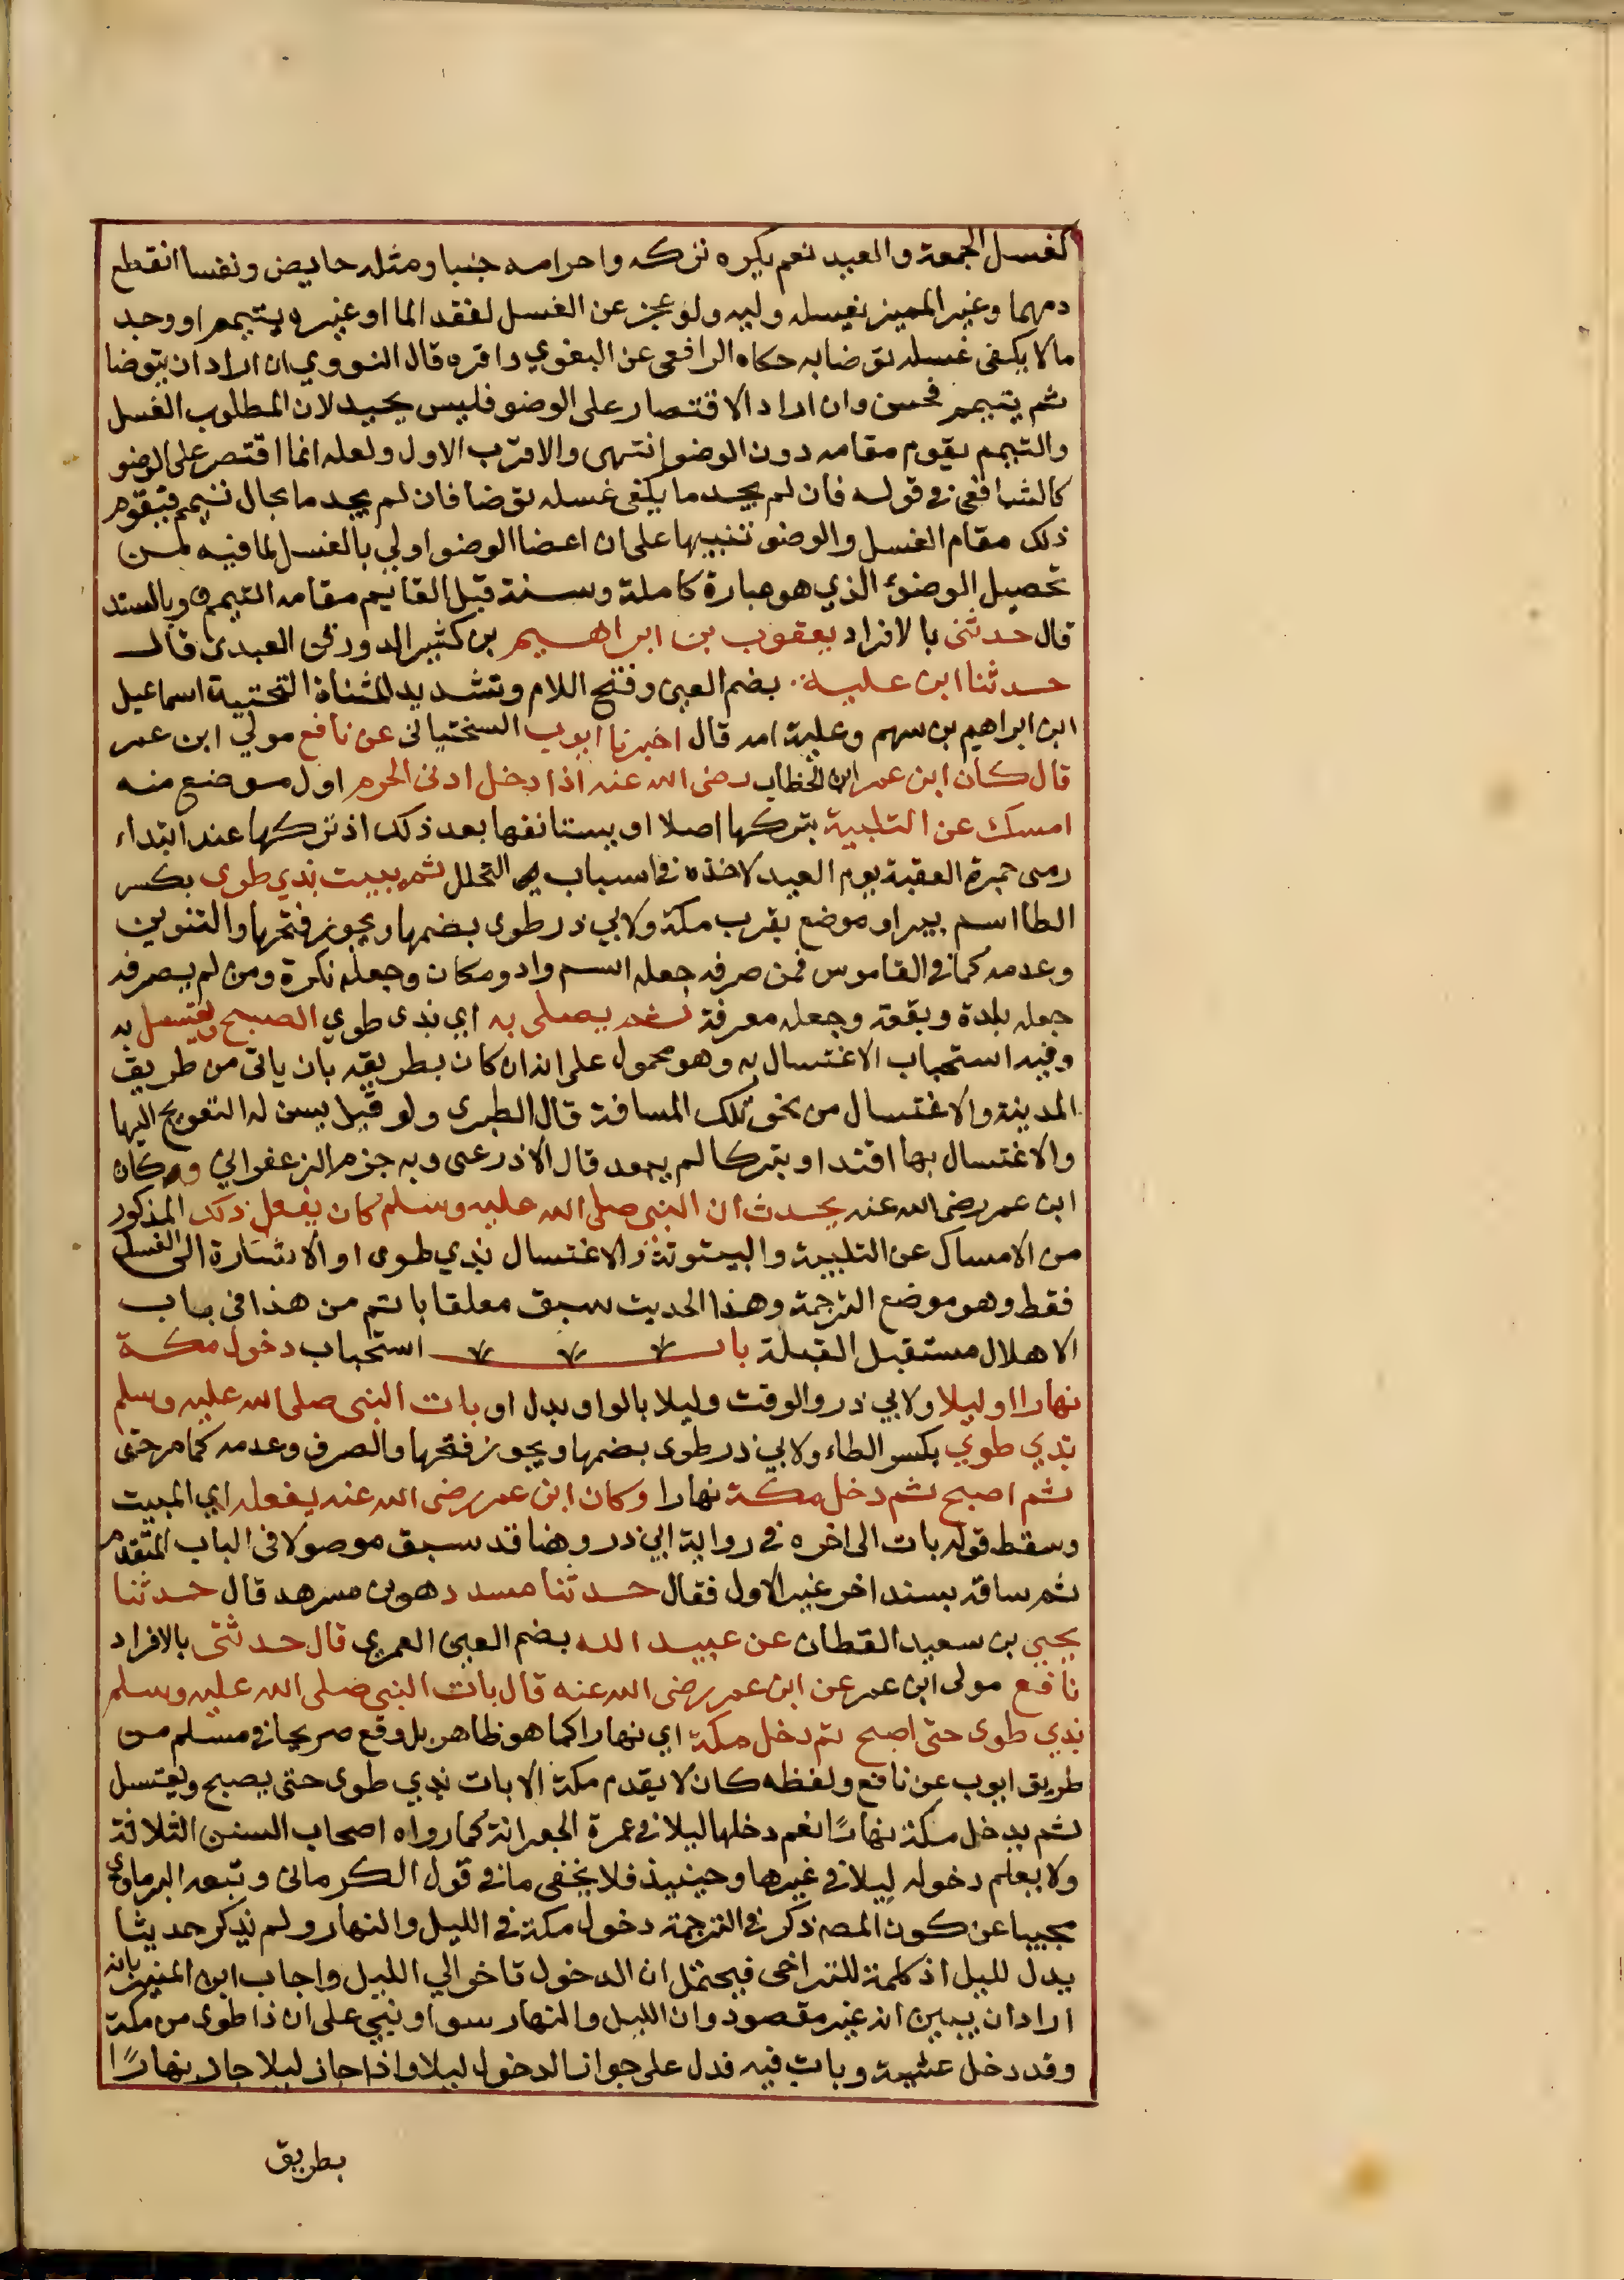 كغسل الجمعة والعيد نعم يكره تركه واحرامه جنبا ومثله حايض ونفسا انقطع
دمهما وغير المميز يغسله وليه ولو عجز عن الغسل لفقد الما او غيره يتيمم او وجد
ما لا يكفى غسله توضا به حكاه الرافعى عن البغوي واقره قال النووي ان اراد ان يتوضا
ثم يتيمم فحسن وان اراد الاقتصار على الوضو فليس بجيد لان المطلوب الغسل
والتيمم يقوم مقامه دون الوضو انتهى والاقرب الاول ولعله انما اقتصر على الوضو
كالشافعى في قوله فان لم يجد ما يكفى غسله توضا فان لم يجد ما بحال تيمم فيقوم
ذلك مقام الغسل والوضو تنبيها على ان اعضا الوضو اولي بالغسل لما فيه لمن
تحصيل الوضوء الذي هو عبارة كاملة وسنة قبل القايم مقامه التيمم وبالسند
قال حدثنى بالافراد يعقوب بن ابراهيم بن كثير الدورقى العبدى قال
حدثنا ابن علية بضم العين وفتح اللام وتشديد المثناة التحتية اسماعيل
ابن ابراهيم بن سهم وعلية امه قال اخبرنا ايوب السختيانى عن نافع مولي ابن عمر
قال كان ابن عمر ابن الخطاب رضى الله عنه اذا دخل ادنى الحرم اول موضع منه
امسك عن التلبية بتركها اصلا او يستانفها بعد ذلك اذ تركها عند ابتداء
رمى جمرة العقبة يوم العيد لاخذه فى اسباب التحلل ثم يبيت بذي طوى بكسر
الطا اسم بير او موضع بقرب مكة ولابي ذر طوى بضمها ويجوز فتحها والتنوين
وعدمه كما في القاموس فمن صرفه جعله اسم واد ومكان وجعله نكرة ومن لم يصرفه
جعله بلدة وبقعة وجعله معرفة ثم يصلى به اي بذى طوي الصبح ويغتسل به
وفيه استحباب الاغتسال به وهو محمول على انه ان كان بطريقه بان ياتى من طريق
المدينة والاغتسال من نحو تلك المسافة قال الطبرى ولو قيل يسن له التعويج اليها
والاغتسال بها اقتدا وبتركا لم يبعد قال الاذرعى وبه جزم الزعفراني وكان
ابن عمر رضى الله عنه يحدث ان النبي صلى الله عليه وسلم كان يفعل ذلك المذكور
من الامساك عن التلبية والبيتوتة والاغتسال بذي طوى او الاشارة الى الغسل
فقط وهو موضع الترجمة وهذا الحديث سبق معلقا باتم من هذا فى باب
الاهلال مستقبل القبلة باب استحباب دخول مكة
نهارا او ليلا ولابي ذر والوقت وليلا بالواو بدل او بات النبى صلى الله عليه وسلم
بذي طوي بكسر الطاء ولابي ذر طوى بضمها ويجوز فتحها والصرف وعدمه كما مر حتى
ثم اصبح ثم دخل مكة نهارا وكان ابن عمر رضى الله عنه يفعله اي المبيت
وسقط قوله بات الى اخره في رواية ابي ذر وهنا قد سبق موصولا فى الباب المتقدم
ثم ساقه بسند اخر غير الاول فقال حدثنا مسدد هو بن مسرهد قال حدثنا
يحيي بن سعيد القطان عن عبيد الله بضم العين العمري قال حدثنى بالافراد
نافع مولى ابن عمر عن ابن عمر رضى الله عنه قال بات النبي صلى الله عليه وسلم
بذي طوى حتى اصبح ثم دخل مكة اي نهارا كما هو ظاهر بل وقع صريحا في مسلم من
طريق ايوب عن نافع ولفظه كان لا يقدم مكة الا بات بذي طوى حتى يصبح ويغتسل
ثم يدخل مكة نهارًا نعم دخلها ليلا في عمرة الجعرانة كما رواه اصحاب السنن الثلاثة
ولا يعلم دخوله ليلا في غيرها وحينيذ فلا يخفى ما في قول الكرمانى وتبعه البرماوي
مجيبا عن كون المصـ ذكر في الترجمة دخول مكة في الليل والنهار ولم يذكر حديثا
يدل لليل اذ كلمة للتراخى فيحتمل ان الدخول تاخر الي الليل واجاب ابن المنير بانه
اراد ان يبين انه غير مقصود وان الليل والنهار سوا ونبي على ان ذا طوى من مكة
وقد دخل عشية وبات فيه فدل على جواز الدخول ليلا واذا جاز ليلا جاز نهارًا
بطريق